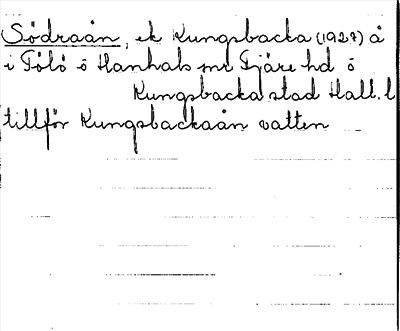 Södraån, ek Kungsbacka (1927) å
i Tölö o Hanhals snr Fjäre hd o
Kungsbacka stad Hall. l
tillför Kungsbackaån vatten